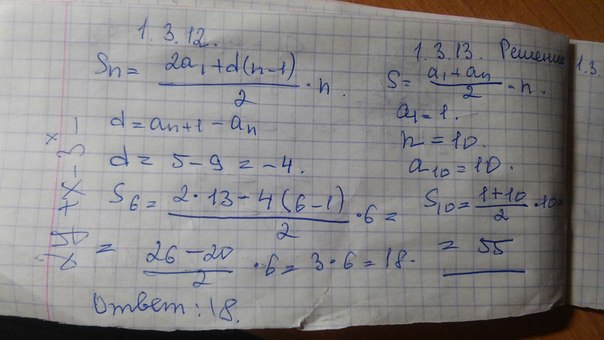 1.3.12.
Sn = (2a₁ + d(n-1))/2 · n.
d = an+1 - an
d = 5 - 9 = -4.
S₆ = (2·13 - 4(6-1))/2 · 6 =
= (26 - 20)/2 · 6 = 3·6 = 18.
Ответ: 18.
1.3.13. Решение
S = (a₁ + an)/2 · n.
a₁ = 1.
n = 10.
a₁₀ = 10.
S₁₀ = (1+10)/2 · 10 =
= 55
1.3.